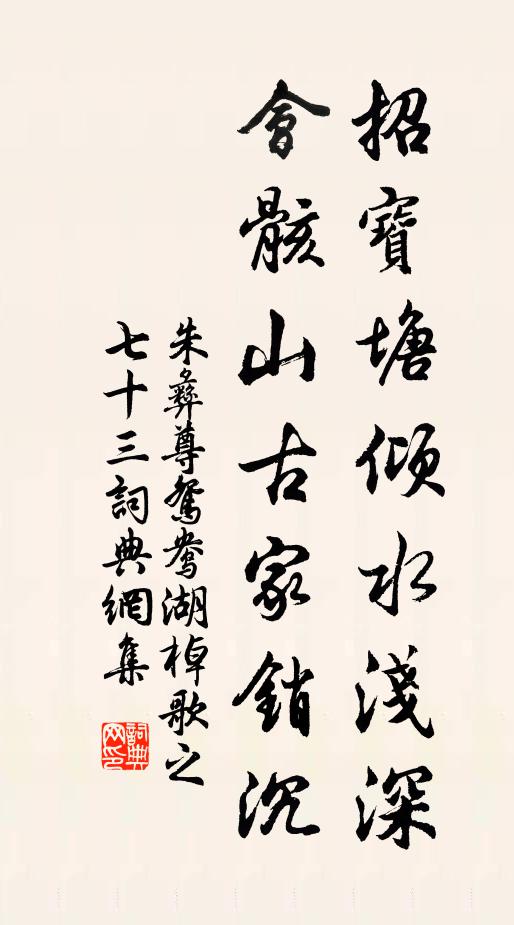 招寶塘傾水淺深
會骸山古冢銷沉
朱彝尊鴛鴦湖棹歌之
七十三詞典網集
詞典网印